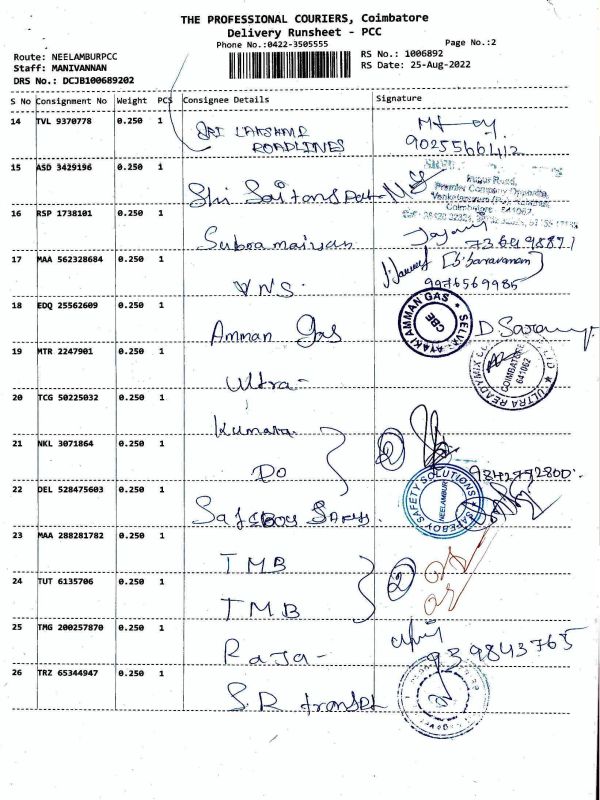 THE PROFESSIONAL COURIERS, Coimbatore
Delivery Runsheet - PCC
Phone No.:0422-3505555
Page No.:2
Route: NEELAMBURPCC
Staff: MANIVANNAN
DRS No.: DCJB100689202
RS No.: 1006892
RS Date: 25-Aug-2022
S No Consignment No Weight PCS Consignee Details Signature
14 TVL 9370778 0.250 1
SRI LAKSHMI
ROADLINES
9025566412
15 ASD 3429196 0.250 1
Shri
Premier Company Opposite,
16 RSP 1738101 0.250 1
Subramaniyan
17 MAA 562328684 0.250 1
VNS
(S. Saravanan)
9976569985
18 EDQ 25562609 0.250 1
Amman Gas
SELVANAYAKI AMMAN GAS
CBE
19 MTR 2247901 0.250 1
Ultra-
ULTRA READYMIX
COIMBATORE
641062
20 TCG 50225032 0.250 1
Kumara
21 NKL 3071864 0.250 1
DO
2
9842792800
22 DEL 528475603 0.250 1
Safeboy Safety.
SAFEBOY SAFETY SOLUTIONS
NEELAMBUR
23 MAA 288281782 0.250 1
TMB
24 TUT 6135706 0.250 1
TMB
2
25 TMG 200257870 0.250 1
Raja-
939843765
26 TRZ 65344947 0.250 1
S.R transport